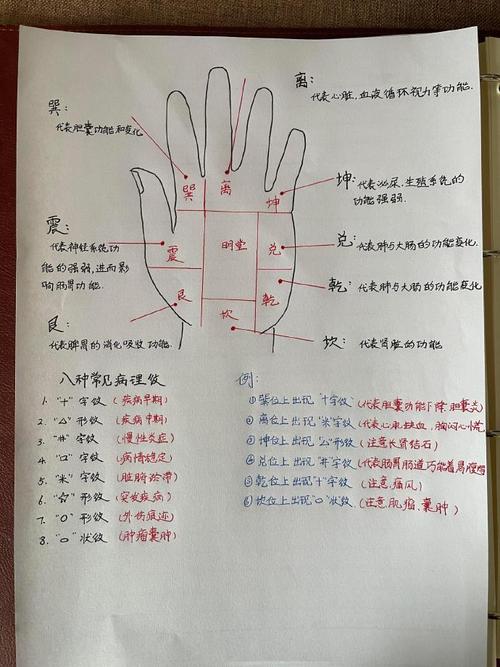 离:
代表心脏,血液循环视力等功能.
巽:
代表胆囊功能和变化
坤:代表泌尿,生殖系统的
功能强弱.
巽
离
坤
震:
代表神经系统功
能的强弱,进而影
响肠胃功能.
震
明堂
兑
兑:代表肺与大肠的功能变化.
艮
乾
乾:代表肺与大肠的功能变化
坎
艮:
代表脾胃的消化吸收功能.
坎:代表肾脏的功能
八种常见病理纹
1. "十"字纹(疾病早期)
2. "△"形纹(疾病中期)
3. "井"字纹(慢性炎症)
4. "口"字纹(病情稳定)
5. "米"字纹(脏腑瘀滞)
6. "☆"形纹(突发疾病)
7. "O"形纹(外伤痕迹)
8. "o"状纹(肿瘤囊肿)
例:
①巽位上出现"十字纹"(代表胆囊功能下降.胆囊炎)
②离位上出现"米"字纹(代表心肌缺血,胸闷心慌)
③坤位上出现"△"形纹(注意长肾结石)
④兑位上出现"井字纹"(代表肠胃肠道
⑤乾位上出现"十"字纹(注意.痛风)
⑥坎位上出现"o"状纹(注意,肌瘤,囊肿)